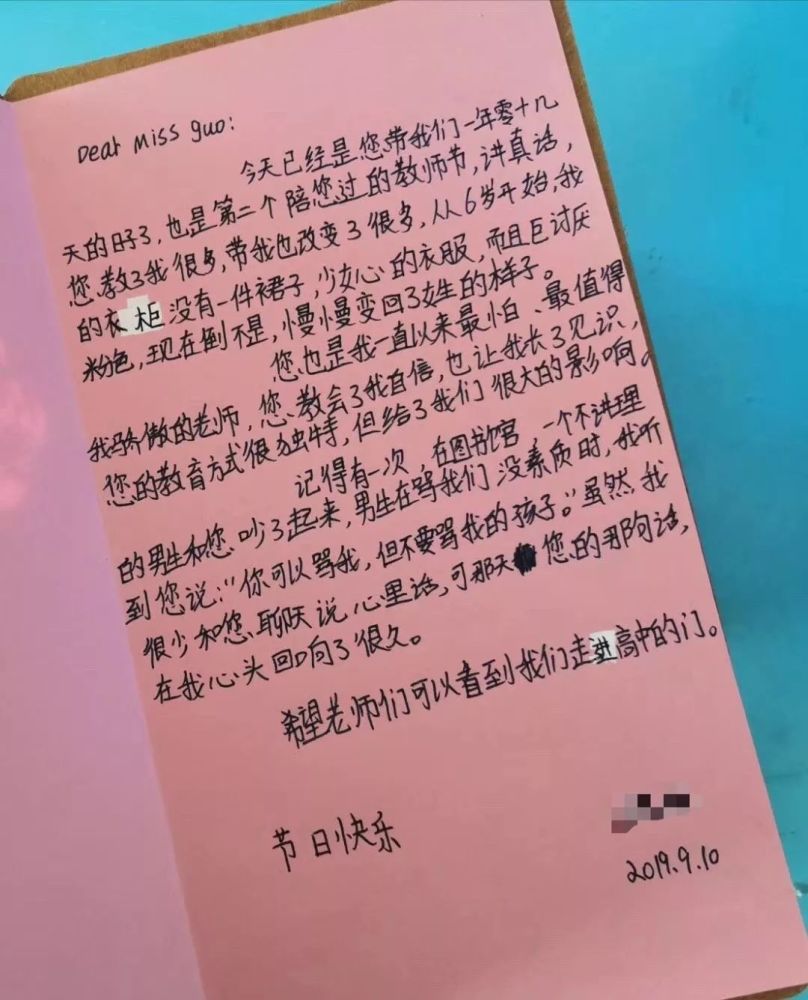 Dear Miss guo:
今天已经是您带我们一年零十几
天的日子了,也是第二个陪您过的教师节,讲真话,
您教了我很多,带我也改变了很多,从6岁开始,我
的衣柜没有一件裙子,少女心的衣服,而且巨讨厌
粉色,现在倒不是,慢慢变回了女生的样子。
您也是我一直以来最怕、最值得
我骄傲的老师,您教会了我自信,也让我长了见识,
您的教育方式很独特,但给了我们很大的影响。
记得有一次,在图书馆,一个不讲理
的男生和您吵了起来,男生在骂我们没素质时,我听
到您说:“你可以骂我,但不要骂我的孩子。”虽然我
很少和您聊天说心里话,可那天您的那句话,
在我心头回响了很久。
希望老师们可以看到我们走进高中的门。
节日快乐
2019.9.10